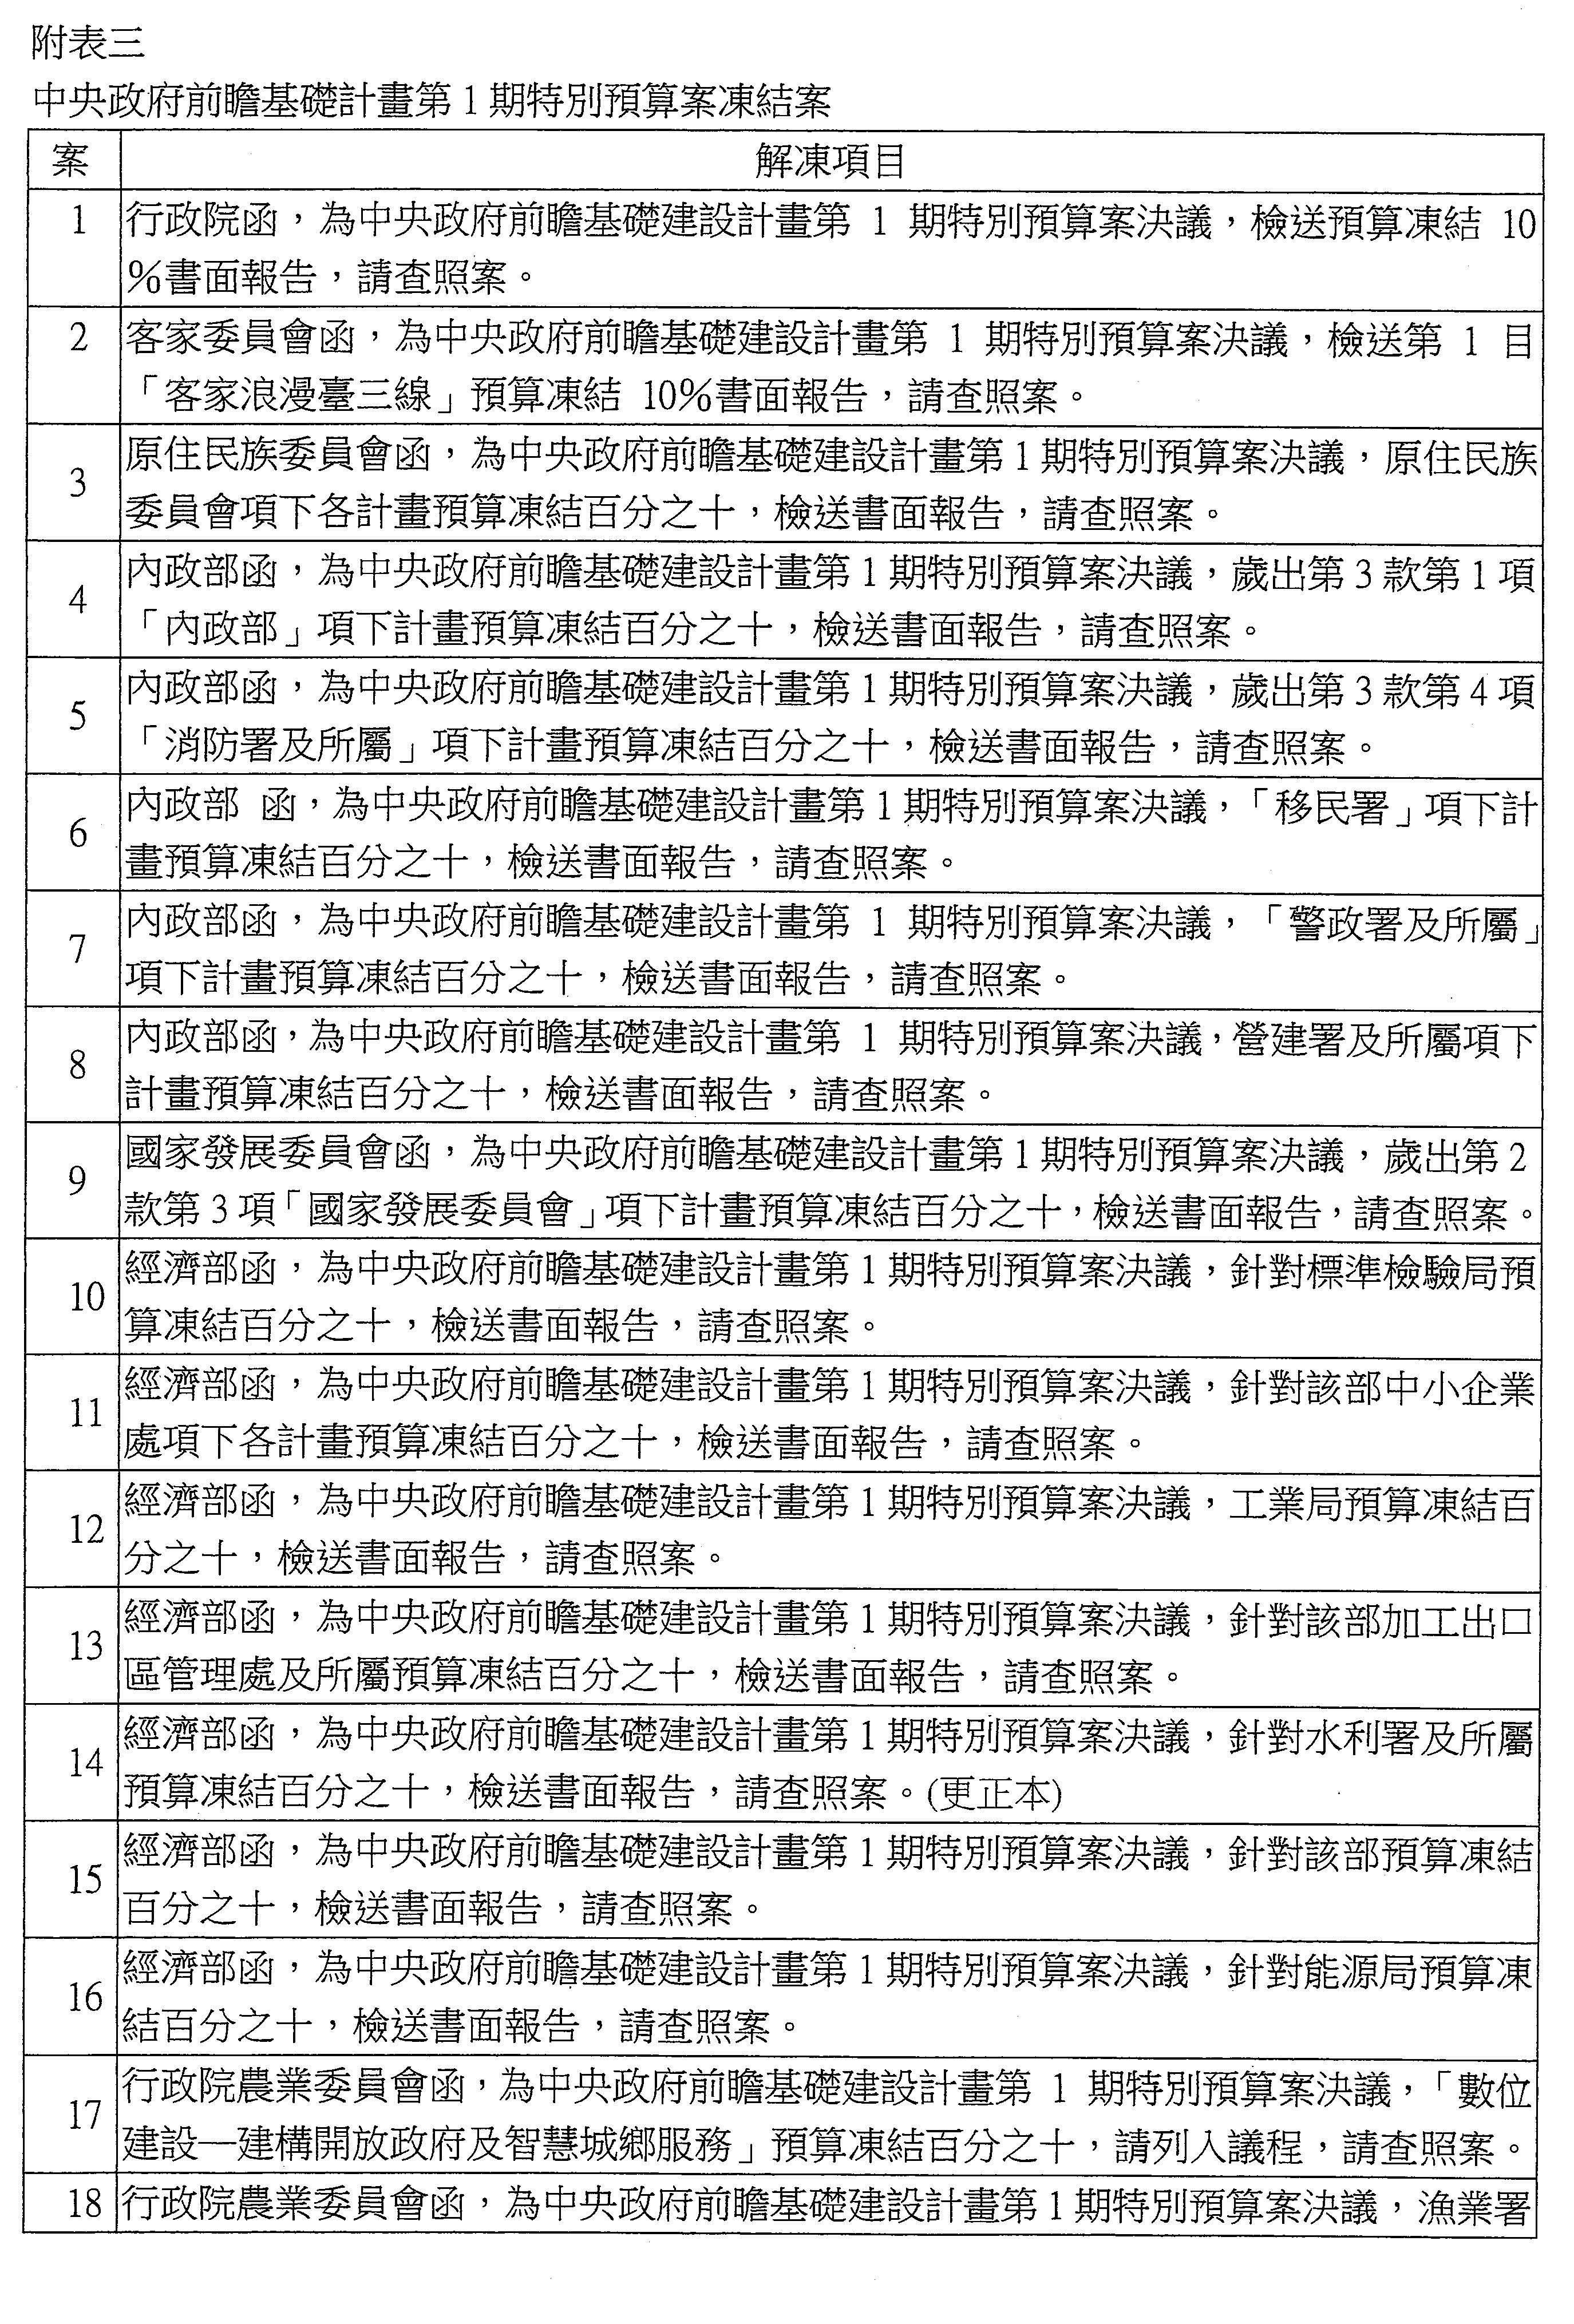 附表三
中央政府前瞻基礎計畫第1期特別預算案凍結案
案 解凍項目
1 行政院函，為中央政府前瞻基礎建設計畫第 1 期特別預算案決議，檢送預算凍結 10
%書面報告，請查照案。
2 客家委員會函，為中央政府前瞻基礎建設計畫第 1 期特別預算案決議，檢送第 1 目
「客家浪漫臺三線」預算凍結 10%書面報告，請查照案。
3 原住民族委員會函，為中央政府前瞻基礎建設計畫第1期特別預算案決議，原住民族
委員會項下各計畫預算凍結百分之十，檢送書面報告，請查照案。
4 內政部函，為中央政府前瞻基礎建設計畫第1期特別預算案決議，歲出第3款第1項
「內政部」項下計畫預算凍結百分之十，檢送書面報告，請查照案。
5 內政部函，為中央政府前瞻基礎建設計畫第1期特別預算案決議，歲出第3款第4項
「消防署及所屬」項下計畫預算凍結百分之十，檢送書面報告，請查照案。
6 內政部 函，為中央政府前瞻基礎建設計畫第1期特別預算案決議，「移民署」項下計
畫預算凍結百分之十，檢送書面報告，請查照案。
7 內政部函，為中央政府前瞻基礎建設計畫第 1 期特別預算案決議，「警政署及所屬」
項下計畫預算凍結百分之十，檢送書面報告，請查照案。
8 內政部函，為中央政府前瞻基礎建設計畫第 1 期特別預算案決議，營建署及所屬項下
計畫預算凍結百分之十，檢送書面報告，請查照案。
9 國家發展委員會函，為中央政府前瞻基礎建設計畫第1期特別預算案決議，歲出第2
款第3項「國家發展委員會」項下計畫預算凍結百分之十，檢送書面報告，請查照案。
10 經濟部函，為中央政府前瞻基礎建設計畫第1期特別預算案決議，針對標準檢驗局預
算凍結百分之十，檢送書面報告，請查照案。
11 經濟部函，為中央政府前瞻基礎建設計畫第1期特別預算案決議，針對該部中小企業
處項下各計畫預算凍結百分之十，檢送書面報告，請查照案。
12 經濟部函，為中央政府前瞻基礎建設計畫第1期特別預算案決議，工業局預算凍結百
分之十，檢送書面報告，請查照案。
13 經濟部函，為中央政府前瞻基礎建設計畫第1期特別預算案決議，針對該部加工出口
區管理處及所屬預算凍結百分之十，檢送書面報告，請查照案。
14 經濟部函，為中央政府前瞻基礎建設計畫第1期特別預算案決議，針對水利署及所屬
預算凍結百分之十，檢送書面報告，請查照案。(更正本)
15 經濟部函，為中央政府前瞻基礎建設計畫第1期特別預算案決議，針對該部預算凍結
百分之十，檢送書面報告，請查照案。
16 經濟部函，為中央政府前瞻基礎建設計畫第1期特別預算案決議，針對能源局預算凍
結百分之十，檢送書面報告，請查照案。
17 行政院農業委員會函，為中央政府前瞻基礎建設計畫第 1 期特別預算案決議，「數位
建設—建構開放政府及智慧城鄉服務」預算凍結百分之十，請列入議程，請查照案。
18 行政院農業委員會函，為中央政府前瞻基礎建設計畫第1期特別預算案決議，漁業署